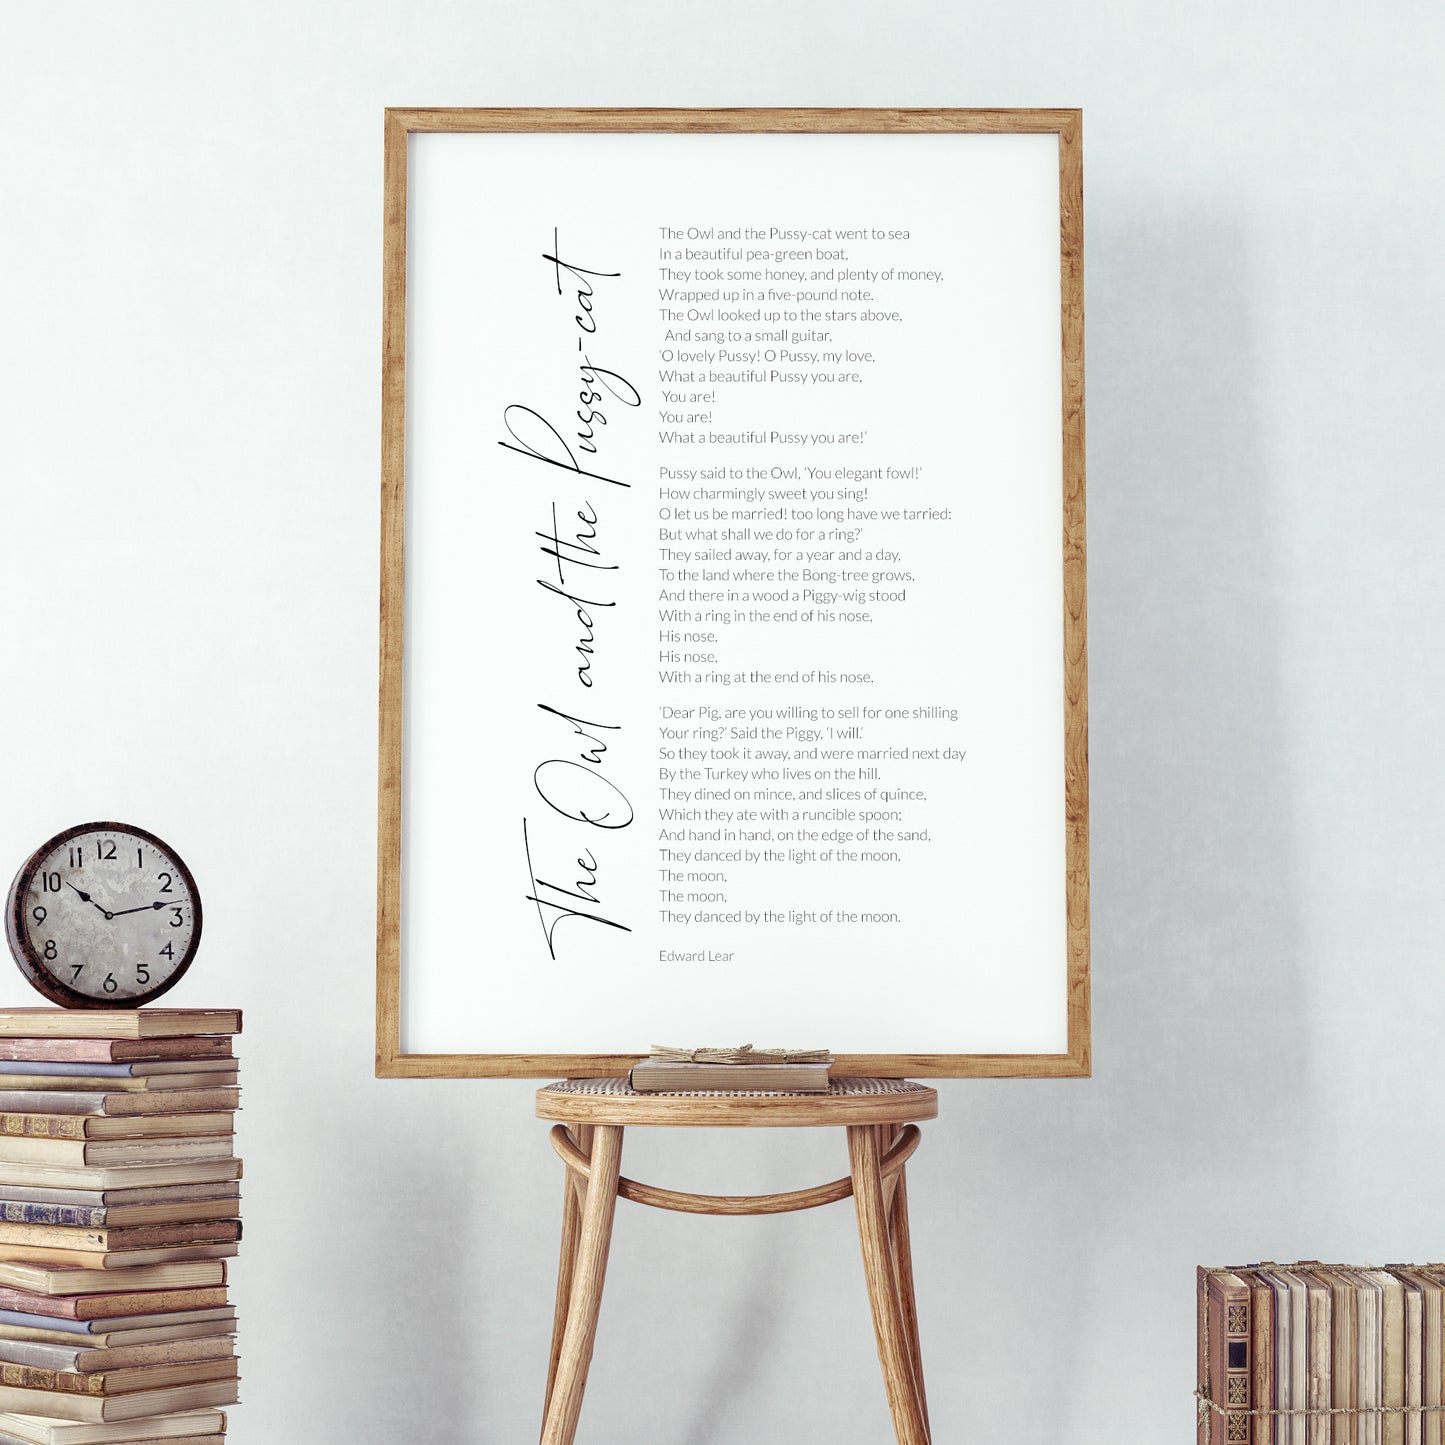 The Owl and the Pussy-cat
The Owl and the Pussy-cat went to sea
In a beautiful pea-green boat,
They took some honey, and plenty of money,
Wrapped up in a five-pound note.
The Owl looked up to the stars above,
And sang to a small guitar,
‘O lovely Pussy! O Pussy, my love,
What a beautiful Pussy you are,
You are!
You are!
What a beautiful Pussy you are!’
Pussy said to the Owl, ‘You elegant fowl!’
How charmingly sweet you sing!
O let us be married! too long have we tarried:
But what shall we do for a ring?’
They sailed away, for a year and a day,
To the land where the Bong-tree grows,
And there in a wood a Piggy-wig stood
With a ring in the end of his nose,
His nose,
His nose,
With a ring at the end of his nose.
‘Dear Pig, are you willing to sell for one shilling
Your ring?’ Said the Piggy, ‘I will.’
So they took it away, and were married next day
By the Turkey who lives on the hill.
They dined on mince, and slices of quince,
Which they ate with a runcible spoon;
And hand in hand, on the edge of the sand,
They danced by the light of the moon,
The moon,
The moon,
They danced by the light of the moon.
Edward Lear
12
1
2
3
4
5
6
7
8
9
10
11